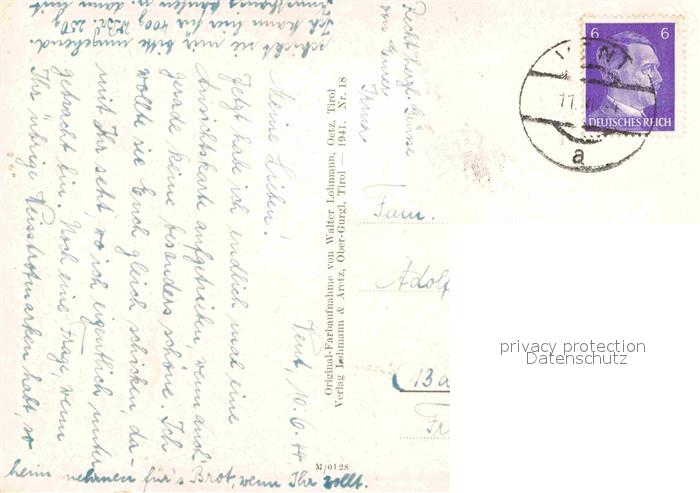 Vent, 10.6.44
Meine Lieben!
Jetzt habe ich endlich mal eine
Ansichtskarte aufgetrieben, wenn auch
gerade keine besonders schöne. Ich
wollte sie Euch gleich schicken, da-
mit Ihr seht, wo ich eigentlich unter
gebracht bin. Noch eine Frage, wenn
Ihr übrige Reisbrotmarken habt, so
schickt sie mir bitte umgehend.
Ich kann hier für 400g 250g
dann mit
heim nehmen für's Brot, wenn Ihr wollt.
Recht herzl. Grüsse
von Eurer
Irma
Original-Farbaufnahme von Walter Lohmann, Oetz, Tirol
Verlag Lohmann & Aretz, Ober-Gurgl, Tirol — 1941. Nr. 18
M/0128
6 6
DEUTSCHES REICH
VENT
11.
a
Fam.
Adolf
(13a
Fr
privacy protection
Datenschutz